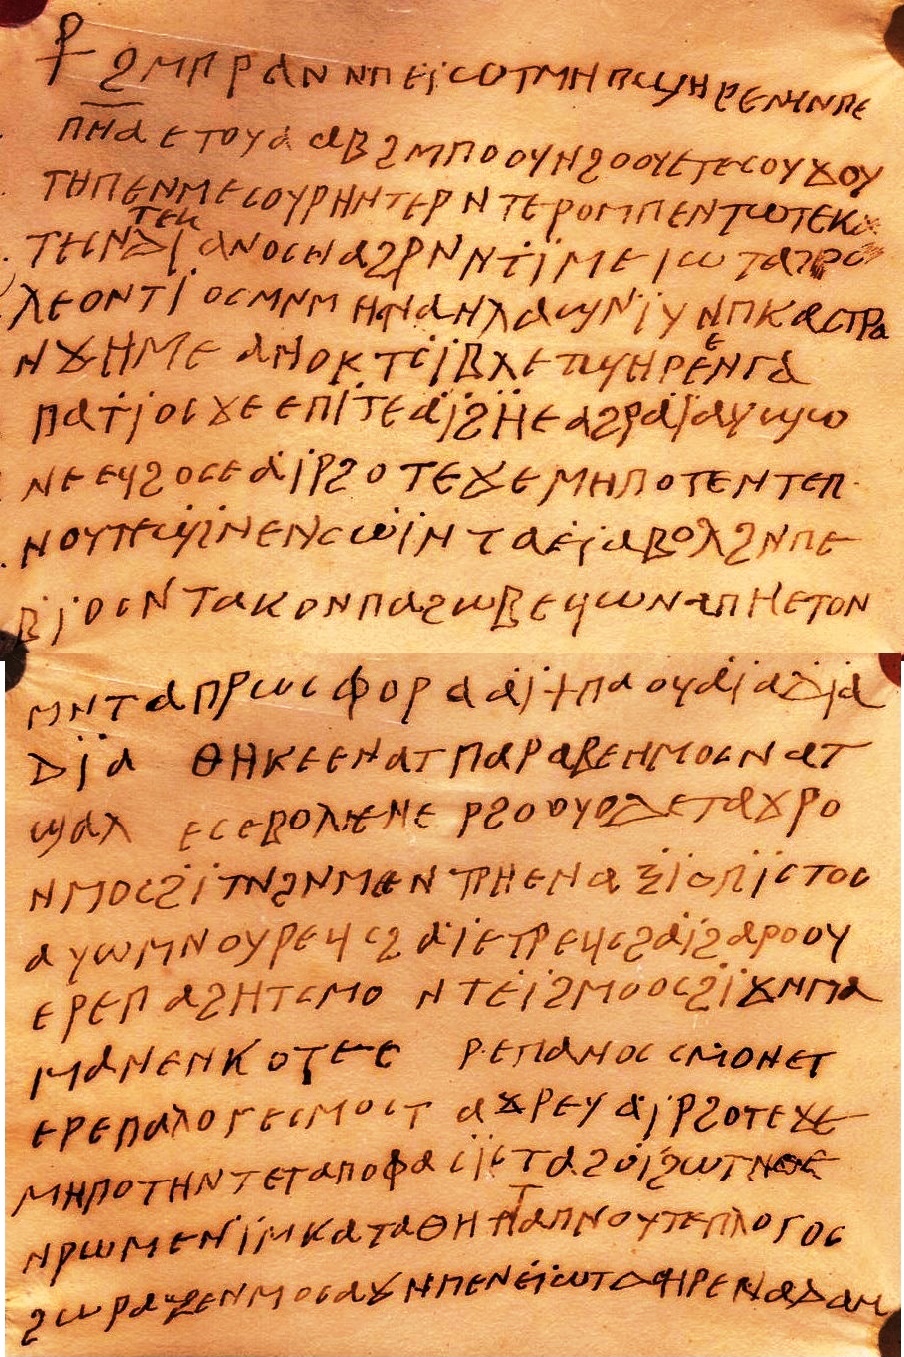 ⳨ ϩⲙⲡⲣⲁⲛ ⲛⲡⲉⲓⲱⲧ ⲙⲏ ⲡϣⲏⲣⲉ ⲙⲛⲡⲉ
ⲡⲛⲁ ⲉⲧⲟⲩⲁⲁⲃ ϩⲙⲡⲟⲟⲩ ⲛϩⲟⲟⲩ ⲉⲧⲉⲥⲟⲩϫⲟⲩ
ⲧⲏ ⲡⲉ ⲛⲙⲉⲥⲟⲩⲣⲏ ⲛⲧⲉⲣ ⲛⲧⲉⲣⲟⲙⲡⲉ
ⲗⲉⲟⲛⲧⲓⲟⲥ ⲙⲛ ⲙⲏⲛⲁ ⲛⲗⲁϣⲛⲓⲩ ⲛⲡⲕⲁⲥⲧⲣⲁ
ⲛϫⲏⲙⲉ ⲁⲛⲟⲕ ⲧⲥⲓⲃⲗⲉ ⲧϣⲏⲣⲉ ⲉⲛⲅⲁ
ⲡⲁⲧⲓⲟⲥ ϫⲉ ⲉⲡⲓⲧⲉ ⲁⲓϩⲏⲉ ⲁϩⲣⲁⲓ ⲁⲩϣⲱ
ⲛⲉ ⲉϥϩⲟⲥⲉ ⲁⲓⲣϩⲟⲧⲉ ϫⲉ ⲙⲏⲡⲟⲧⲉ ⲛⲧⲉⲡ
ⲛⲟⲩⲧⲉ ϣⲓⲛⲉ ⲛⲥⲱⲓ ⲛⲧⲁⲉⲓ ⲁⲃⲟⲗ ϩⲛ ⲡⲉ
ⲃⲓⲟⲥ ⲛⲧⲁⲕⲟⲛ ⲡⲁϩⲱⲃ ⲉϥⲱⲛ ⲁⲡⲏⲉⲧⲟⲛ
ⲙⲛ ⲧⲁⲡⲣⲱⲥⲫⲟⲣⲁ ⲁⲓϯ ⲡⲁⲟⲩⲁⲓ ⲁⲇⲓⲁ
ⲇⲓⲁ ⲑⲏⲕⲉ ⲉⲛⲁⲧⲡⲁⲣⲁⲃⲉ ⲙⲙⲟⲥ ⲛⲁⲧ
ϣⲁⲗ ⲉⲥⲉⲃⲟⲗ ⲉⲛⲉ ⲣϩⲟⲩⲟ ⲇⲉ ⲧⲁϫⲣⲟ
ⲛⲙⲟⲥ ϩⲓⲧⲛ ϩⲛⲙⲉⲛⲧⲣⲏ ⲉⲛⲁⲝⲓⲟⲡⲓⲥⲧⲟⲥ
ⲁⲩⲱ ⲙⲛ ⲟⲩⲣⲉϥⲥϩⲁⲓ ⲉⲧⲣⲉϥⲥϩⲁⲓ ϩⲁⲣⲟⲟⲩ
ⲉⲣⲉ ⲡⲁϩⲏⲧ ⲥⲙⲟⲛⲧ ⲉⲓϩⲙⲟⲟⲥ ϩⲓϫⲛ ⲡⲁ
ⲙⲁ ⲛⲉⲛⲕⲟⲧⲕ ⲉⲣⲉ ⲡⲁⲛⲟⲥ ⲥⲙⲟⲛⲉⲧ
ⲉⲣⲉ ⲡⲁⲗⲟⲅⲉⲥⲙⲟⲥ ⲧⲁϫⲣⲉⲩ ⲁⲓⲣϩⲟⲧⲉ ϫⲉ
ⲙⲏⲡⲟⲧⲏ ⲛⲧⲉⲧⲁⲡⲟⲫⲁⲥⲓⲥ ⲧⲁϩⲟⲓ ϩⲱⲧ ⲛⲑⲉ
ⲛⲣⲱⲙⲉ ⲛⲓⲙ ⲕⲁⲧⲁ ⲑⲏ ⲛⲧⲁ ⲡⲛⲟⲩⲧⲉ ⲡⲗⲟⲅⲟⲥ
ϩⲱⲣⲁⲍⲉ ⲛⲙⲟⲥ ⲁϫⲛ ⲡⲉⲛⲉⲓⲱⲧ ⲛⲁⲇⲁⲙ